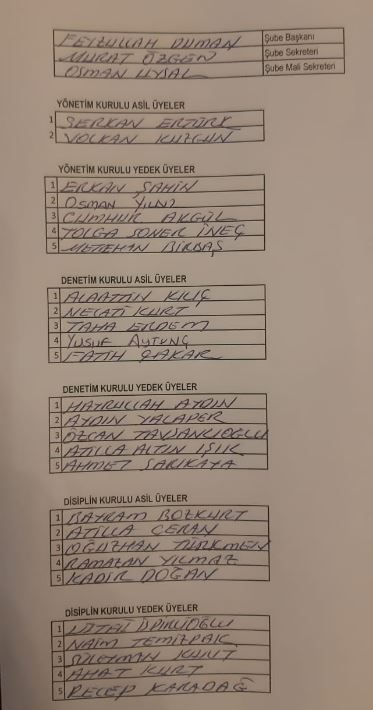 FEYZULLAH DUMAN Şube Başkanı
MURAT ÖZGEN Şube Sekreteri
OSMAN UYSAL Şube Mali Sekreteri
YÖNETİM KURULU ASİL ÜYELER
1 SERKAN ERTÜRK
2 VOLKAN KUZGUN
YÖNETİM KURULU YEDEK ÜYELER
1 ERKAN ŞAHİN
2 OSMAN
3 CUMHUR AKGÜL
4 TOLGA SONER İNEÇ
5 METEHAN BİRBAŞ
DENETİM KURULU ASİL ÜYELER
1 ALAATTİN KILIÇ
2 NECATİ KURT
3 TAHA ERDEM
4 YUSUF AYTUNÇ
5 FATİH ÇAKAR
DENETİM KURULU YEDEK ÜYELER
1 HAYRULLAH AYDIN
2 AYDIN YALAPER
3 ÖZCAN TAVŞANCIOĞLU
4 ATİLLA ALTIN IŞIK
5 AHMET SARIKAYA
DİSİPLİN KURULU ASİL ÜYELER
1 BAYRAM BOZKURT
2 ATİLLA CERAN
3 OĞUZHAN TÜRKMEN
4 RAMAZAN YILMAZ
5 KADİR DOĞAN
DİSİPLİN KURULU YEDEK ÜYELER
1
2 NAİM TEMİZPAK
3 SÜLEYMAN KURT
4 AHAT KURT
5 RECEP KARADAĞ